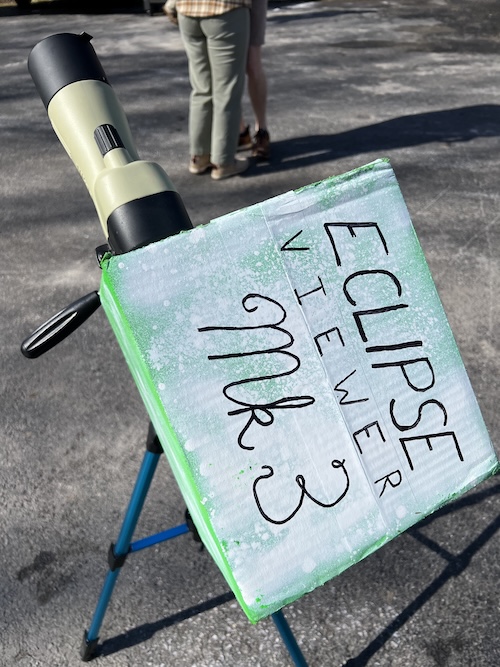 ECLIPSE
VIEWER
Mk 3